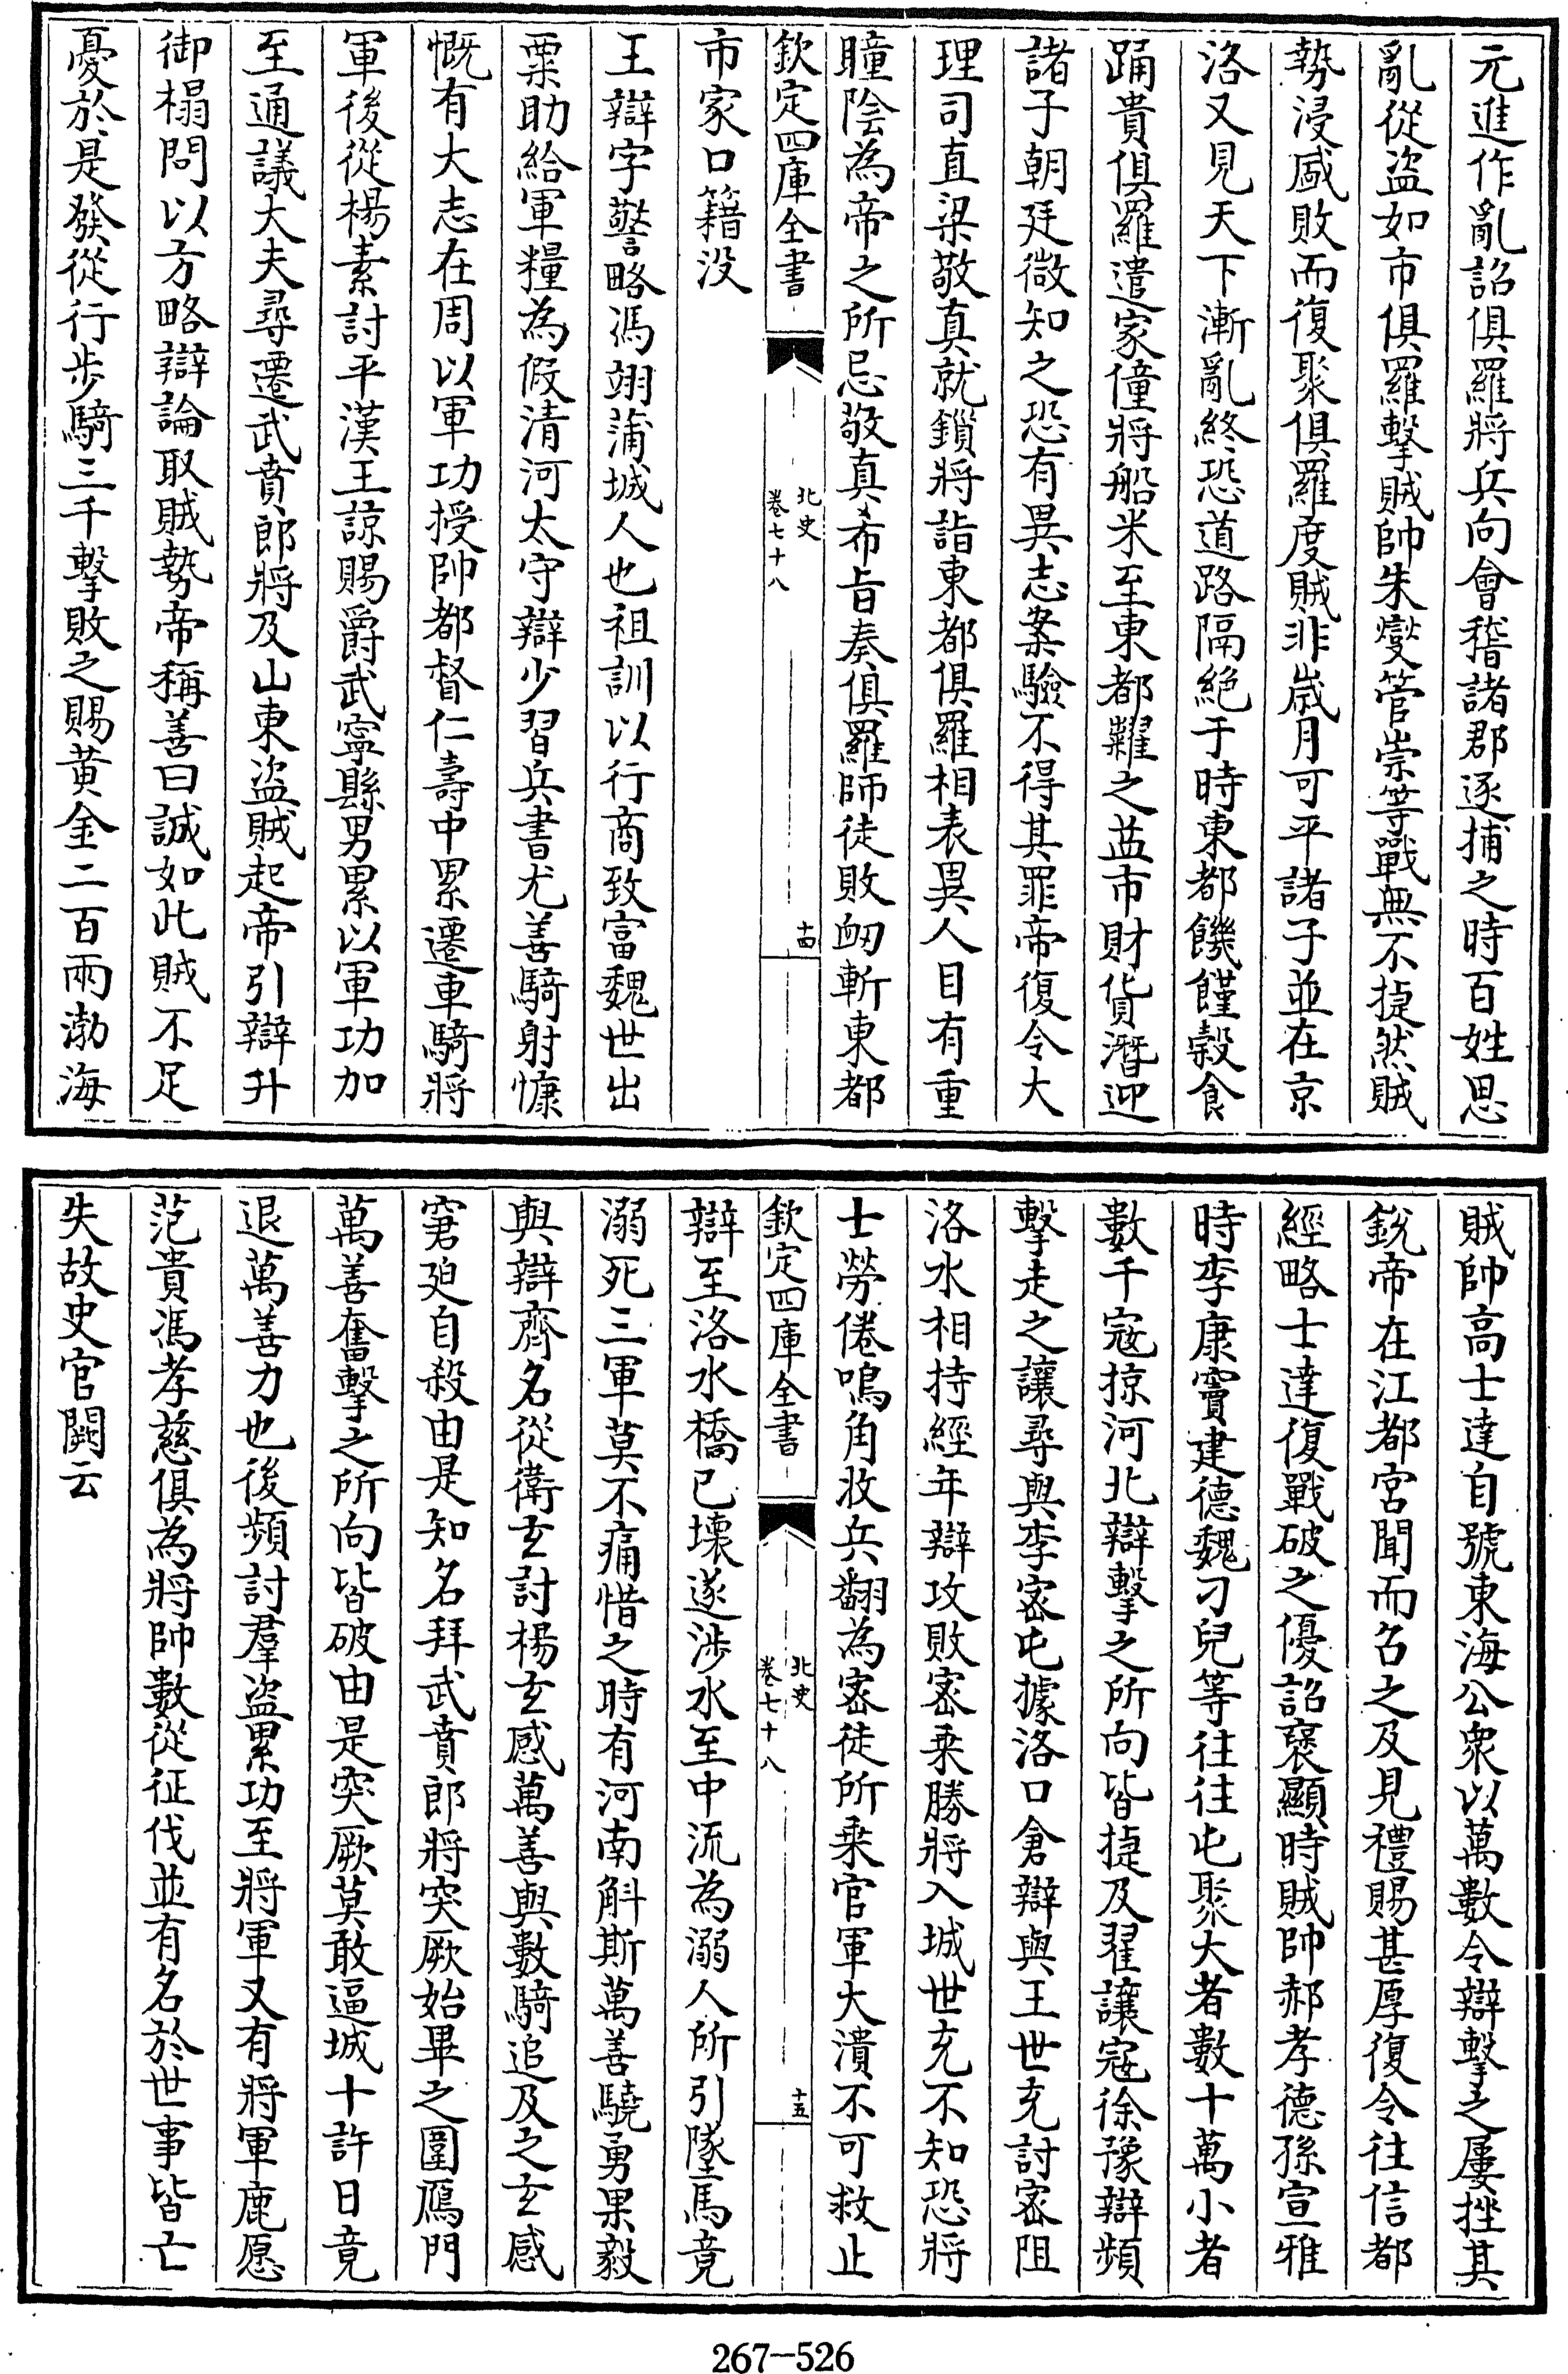 元進作亂詔俱羅將兵向會稽諸郡逐捕之時百姓思
亂從盗如市俱羅擊賊帥朱燮管崇等戰無不捷然賊
勢浸盛敗而復聚俱羅度賊非歲月可平諸子並在京
洛又見天下漸亂終恐道路隔絶于時東都饑饉穀食
踊貴俱羅遣家僮將船米至東都糶之益市財貨潛迎
諸子朝廷微知之恐有異志案驗不得其罪帝復令大
理司直梁敬真就鎖將詣東都俱羅相表異人目有重
瞳陰為帝之所忌敬真希旨奏俱羅師徒敗衂斬東都
欽定四庫全書
北史
卷七十八
十四
市家口籍没
王辯字警略馮翊蒲城人也祖訓以行商致富魏世出
粟助給軍糧為假清河太守辯少習兵書尤善騎射慷
慨有大志在周以軍功授帥都督仁壽中累遷車騎將
軍後從楊素討平漢王諒賜爵武寧縣男累以軍功加
至通議大夫尋遷武賁郎將及山東盗賊起帝引辯升
御榻問以方略辯論取賊勢帝稱善曰誠如此賊不足
憂於是發從行步騎三千擊敗之賜黄金二百兩渤海
賊帥高士達自號東海公衆以萬數令辯擊之屢挫其
鋭帝在江都宮聞而召之及見禮賜甚厚復令往信都
經略士達復戰破之優詔褒顯時賊帥郝孝德孫宣雅
時季康竇建德魏刁兒等往往屯聚大者數十萬小者
數千寇掠河北辯擊之所向皆捷及翟讓寇徐豫辯頻
擊走之讓尋與李密屯據洛口倉辯與王世充討密阻
洛水相持經年辯攻敗密乘勝將入城世充不知恐將
士勞倦鳴角收兵翻為密徒所乘官軍大潰不可救止
欽定四庫全書
北史
卷七十八
十五
辯至洛水橋已壞遂涉水至中流為溺人所引墜馬竟
溺死三軍莫不痛惜之時有河南斛斯萬善驍勇果毅
與辯齊名從衛玄討楊玄感萬善與數騎追及之玄感
窘廹自殺由是知名拜武賁郎將突厥始畢之圍鴈門
萬善奮擊之所向皆破由是突厥莫敢逼城十許日竟
退萬善力也後頻討羣盗累功至將軍又有將軍鹿愿
范貴馮孝慈俱為將帥數從征伐並有名於世事皆亡
失故史官闕云
267-526